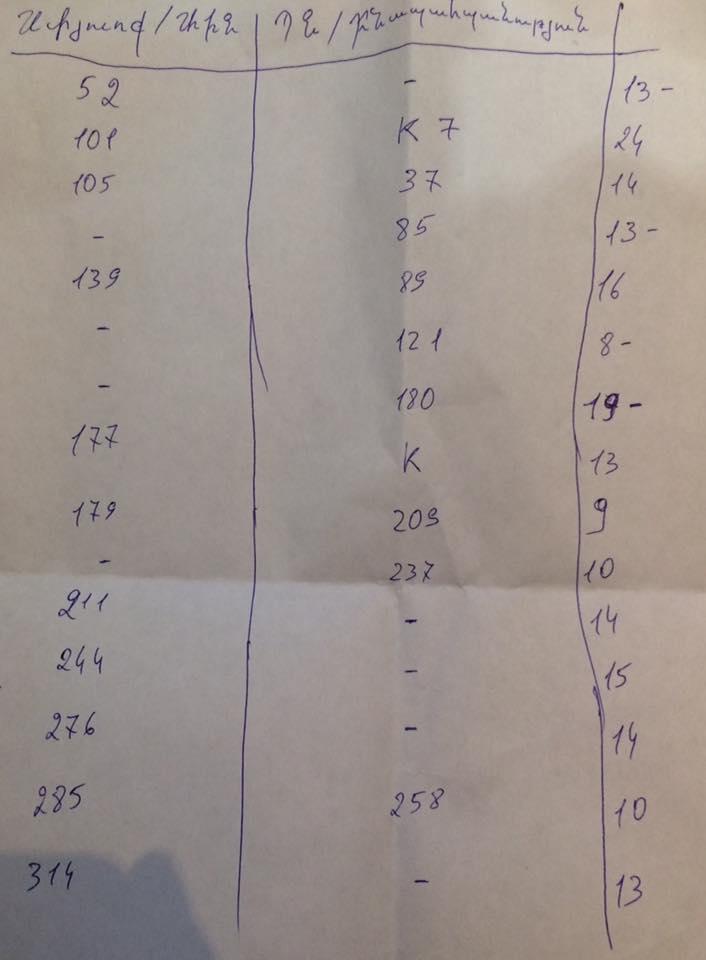 Սփյուռք / Կիին | ՊՆ / Ինապահպանություն |
52 | - | 13 -
101 | K 7 | 24
105 | 37 | 14
- | 85 | 13 -
139 | 89 | 16
- | 121 | 8 -
- | 180 | 19 -
177 | K | 13
179 | 209 | 9
- | 237 | 10
211 | - | 14
244 | - | 15
276 | - | 14
285 | 258 | 10
314 | - | 13